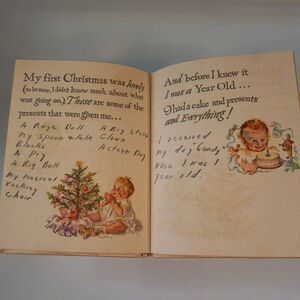 My first Christmas was lovely
(to be sure, I didn't know much about what
was going on.) These are some of the
presents that were given me...
A Rage Doll A Big Stove
My Spoon & Folk Clown
Blocks A stuff Dog
A Pig
A Big Ball
My musical
rocking
chair
And before I knew it
I was a Year Old...
I had a cake and presents
and Everything!
I received
my dog "Candy"
When I was 1
year old.